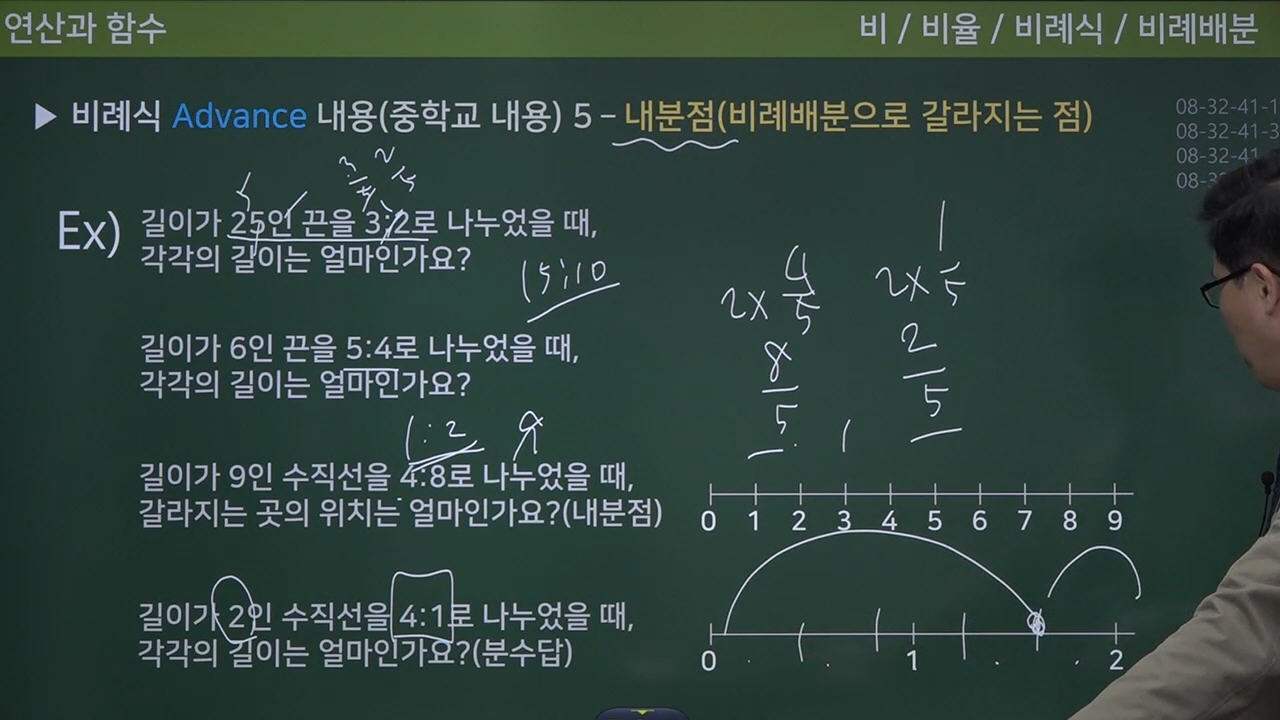 연산과 함수
비 / 비율 / 비례식 / 비례배분
▶ 비례식 Advance 내용(중학교 내용) 5 – 내분점(비례배분으로 갈라지는 점)
08-32-41-1
08-32-41-3
08-32-41-
08-3
3/5 2/5
Ex) 길이가 25인 끈을 3:2로 나누었을 때,
각각의 길이는 얼마인가요?
15:10
길이가 6인 끈을 5:4로 나누었을 때,
각각의 길이는 얼마인가요?
1:2 9
길이가 9인 수직선을 4:8로 나누었을 때,
갈라지는 곳의 위치는 얼마인가요?(내분점)
길이가 2인 수직선을 4:1로 나누었을 때,
각각의 길이는 얼마인가요?(분수답)
2× 4/5 2× 1/5
8/5 2/5
0 1 2 3 4 5 6 7 8 9
0 1 2